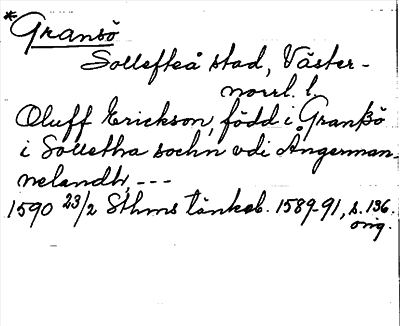 *Gransö
Sollefteå stad, Väster-
norrl. l.
Oluff Erickson, född i Granßö
i Solletha sochn vdi Ångerman-
nelandh, ---
1590 23/2 Sthms tänkeb. 1589-91, s. 136.
orig.